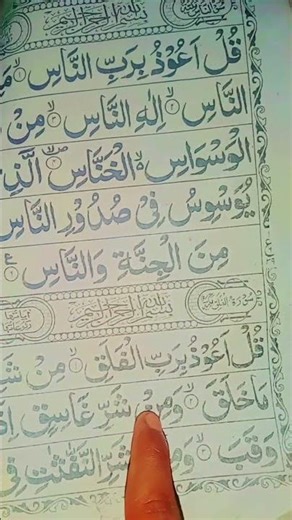 بسم الله الرحمن الرحيم
قُلْ اَعُوْذُ بِرَبِّ النَّاسِ ۙ۱
النَّاسِ ۙ۲ اِلٰهِ النَّاسِ ۙ۳ مِنْ
الْوَسْوَاسِ ۙ۬ الْخَنَّاسِ ۪ۙ۴ الَّذِ
يُوَسْوِسُ فِيْ صُدُوْرِ النَّاسِ
مِنَ الْجِنَّةِ وَالنَّاسِ
بسم الله الرحمن الرحيم
قُلْ اَعُوْذُ بِرَبِّ الْفَلَقِ ۙ۱ مِنْ شَ
مَا خَلَقَ ۙ۲ وَمِنْ شَرِّ غَاسِقٍ اِذَ
وَقَبَ ۙ۳ وَمِ شَرِّ النَّفّٰثٰتِ فِ